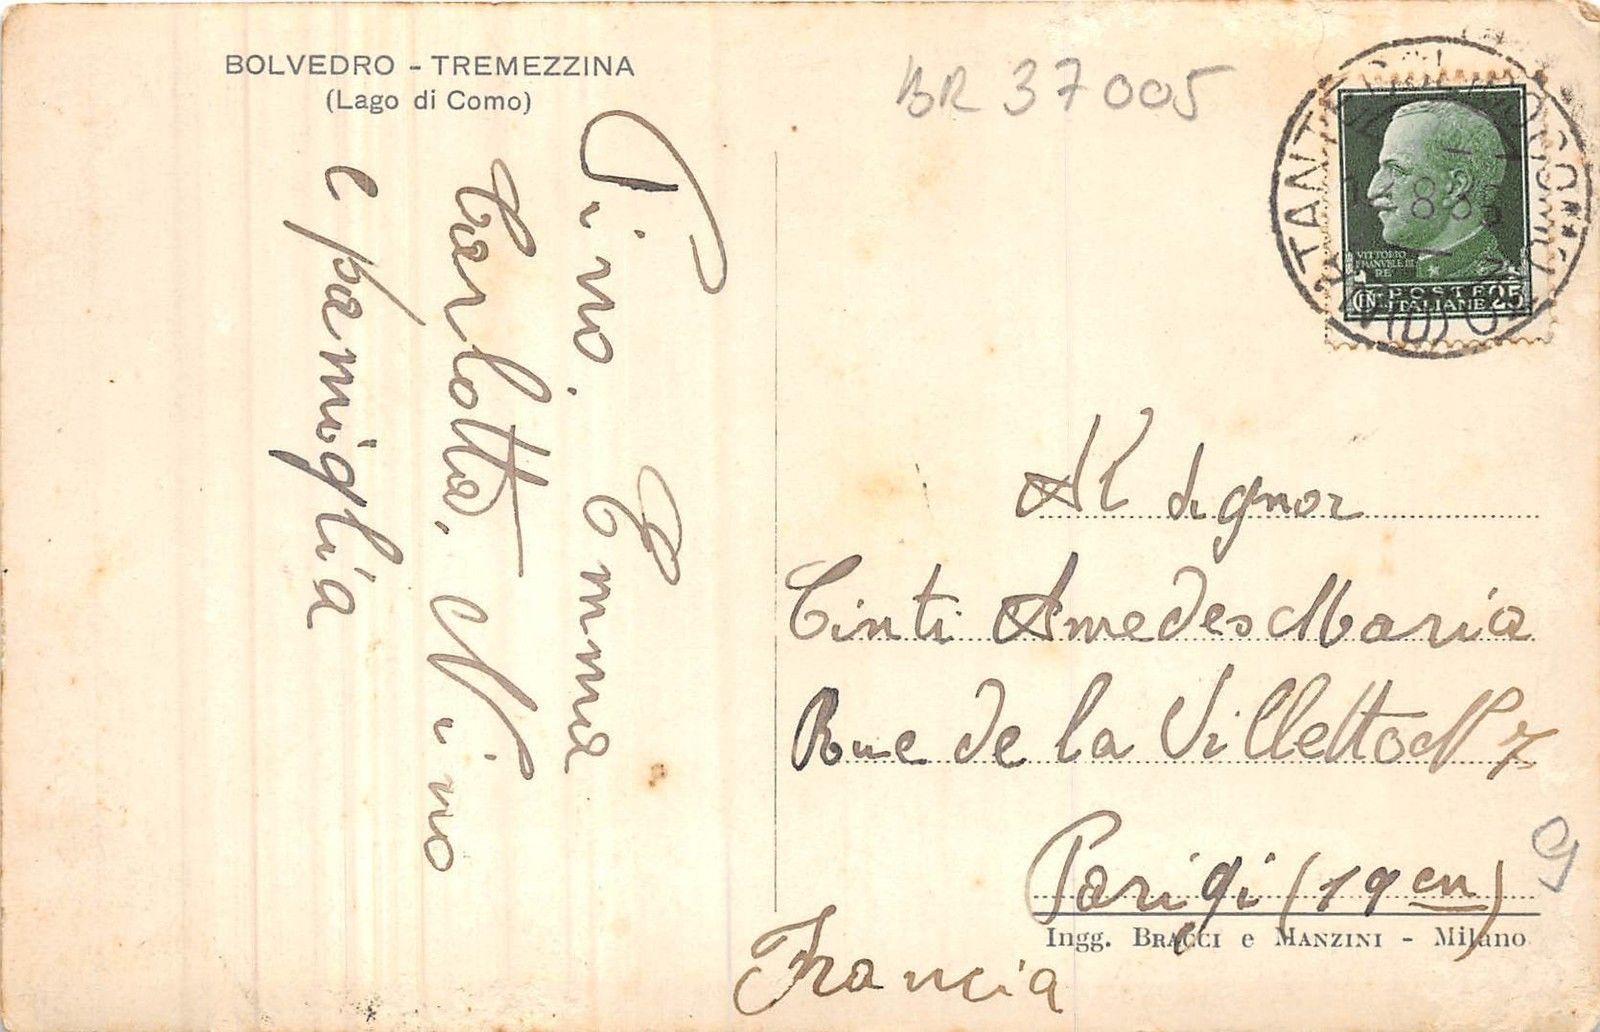 BOLVEDRO - TREMEZZINA
(Lago di Como)
BR 37005
Pino. Emma
Carlotta. Nino
e famiglia
VITTORIO
EMANUELE III
RE
CENT POSTE 25
ITALIANE
Al Signor
Cinti Amedeo Maria
Rue de la Villetto N 7
Parigi (19en)
Francia
Ingg. BRACCI e MANZINI - Milano
9